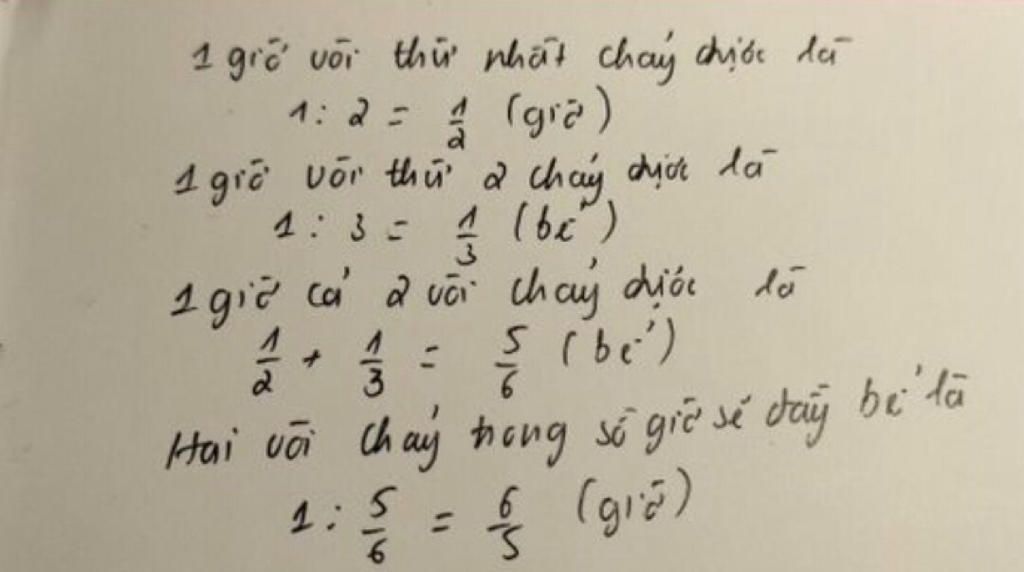 1 giờ vòi thứ nhất chảy được là
1 : 2 = 1/2 (giờ)
1 giờ vòi thứ 2 chảy được là
1 : 3 = 1/3 (bể)
1 giờ cả 2 vòi chảy được là
1/2 + 1/3 = 5/6 (bể)
Hai vòi chảy trong số giờ sẽ đầy bể là
1 : 5/6 = 6/5 (giờ)